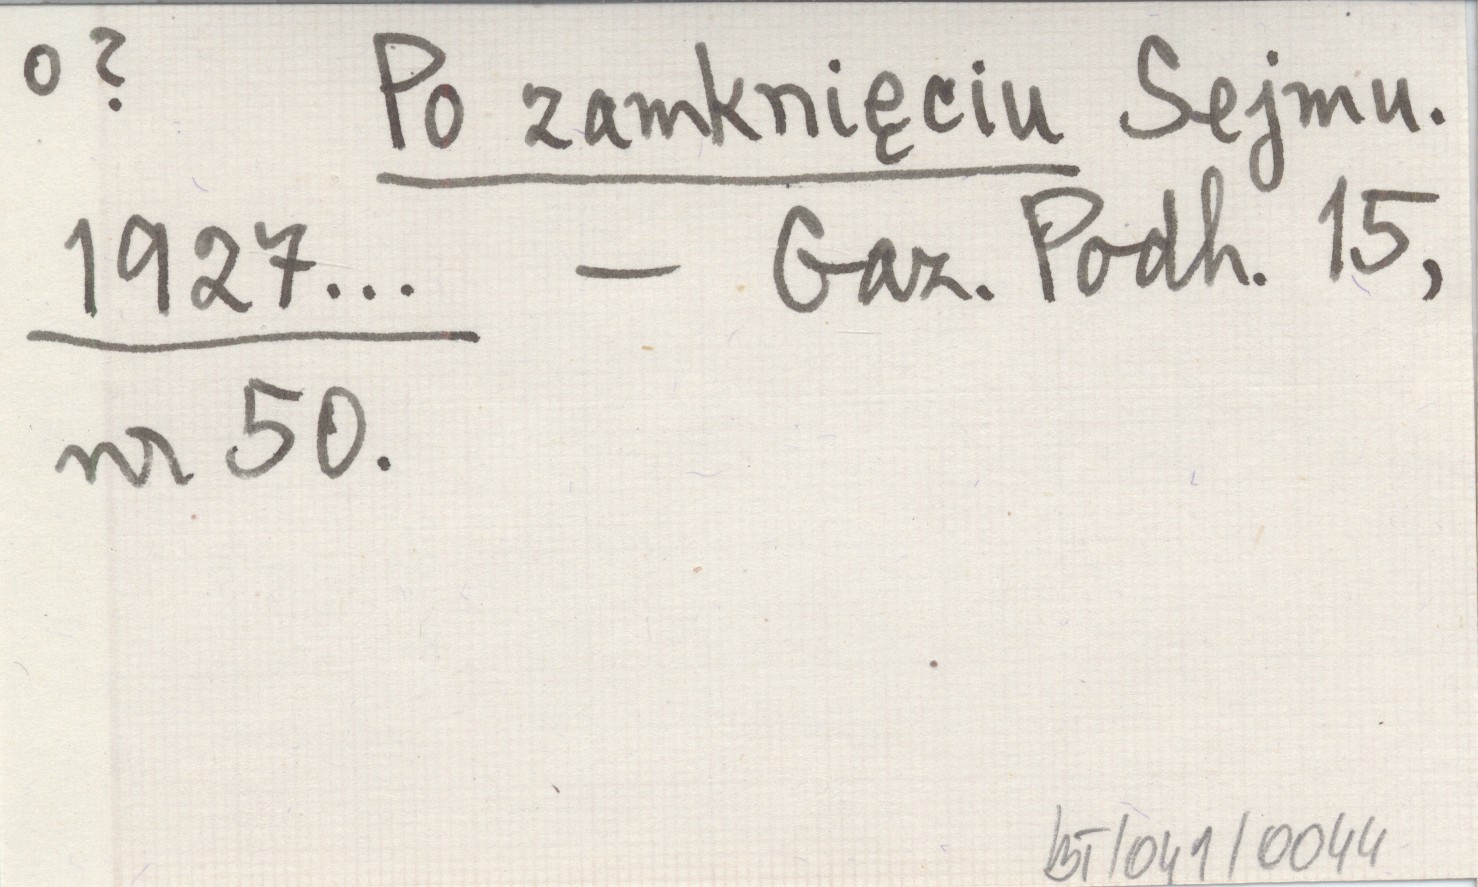 o? Po zamknięciu Sejmu.
1927... – Gaz. Podh. 15,
nr 50.
BT/041/0044